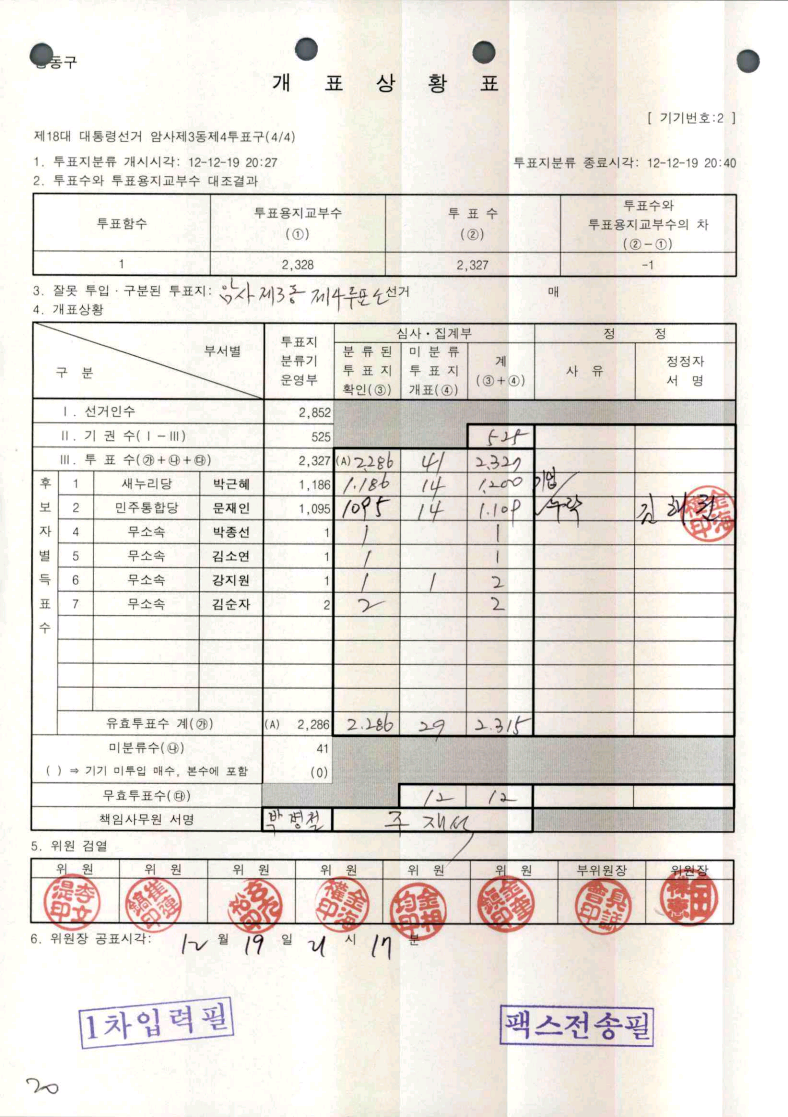 동구
개 표 상 황 표
[ 기기번호:2 ]
제18대 대통령선거 암사제3동제4투표구(4/4)
1. 투표지분류 개시시각: 12-12-19 20:27 투표지분류 종료시각: 12-12-19 20:40
2. 투표수와 투표용지교부수 대조결과
투표함수 투표용지교부수 (①) 투 표 수 (②) 투표수와 투표용지교부수의 차 (②-①)
1 2,328 2,327 -1
3. 잘못 투입ㆍ구분된 투표지: 암사제3동 제4투표소 선거 매
4. 개표상황
구 분 부서별 투표지 분류기 운영부 심사ㆍ집계부 정 정
분 류 된 투 표 지 확인(③) 미 분 류 투 표 지 개표(④) 계 (③+④) 사 유 정정자 서 명
Ⅰ. 선거인수 2,852
Ⅱ. 기 권 수(Ⅰ-Ⅲ) 525 525
Ⅲ. 투 표 수(㉮+㉯+㉰) 2,327 (A) 2.286 41 2.327
후보자별득표수
1 새누리당 박근혜 1,186 1.186 14 1.200 기입
2 민주통합당 문재인 1,095 1095 14 1.109 누락
4 무소속 박종선 1 1 1
5 무소속 김소연 1 1 1
6 무소속 강지원 1 1 1 2
7 무소속 김순자 2 2 2
유효투표수 계(㉮) (A) 2,286 2.286 29 2.315
미분류수(㉯) 41
( ) ⇒ 기기 미투입 매수, 본수에 포함 (0)
무효투표수(㉰) 12 12
책임사무원 서명
5. 위원 검열
위 원 위 원 위 원 위 원 위 원 위 원 부위원장 위원장
6. 위원장 공표시각: 12 월 19 일 21 시 17 분
1차입력필
팩스전송필
20